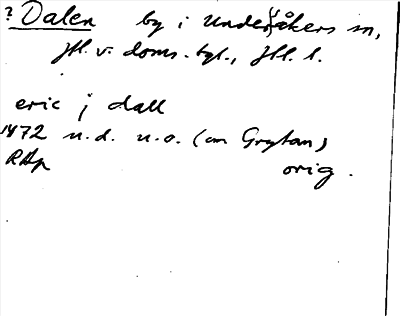 ? Dalen by i Undersåkers sn,
Jtl. v. doms. tgl., Jtl. l.
eric j dall
1472 u.d. u.o. (om Grytan)
RAp orig.